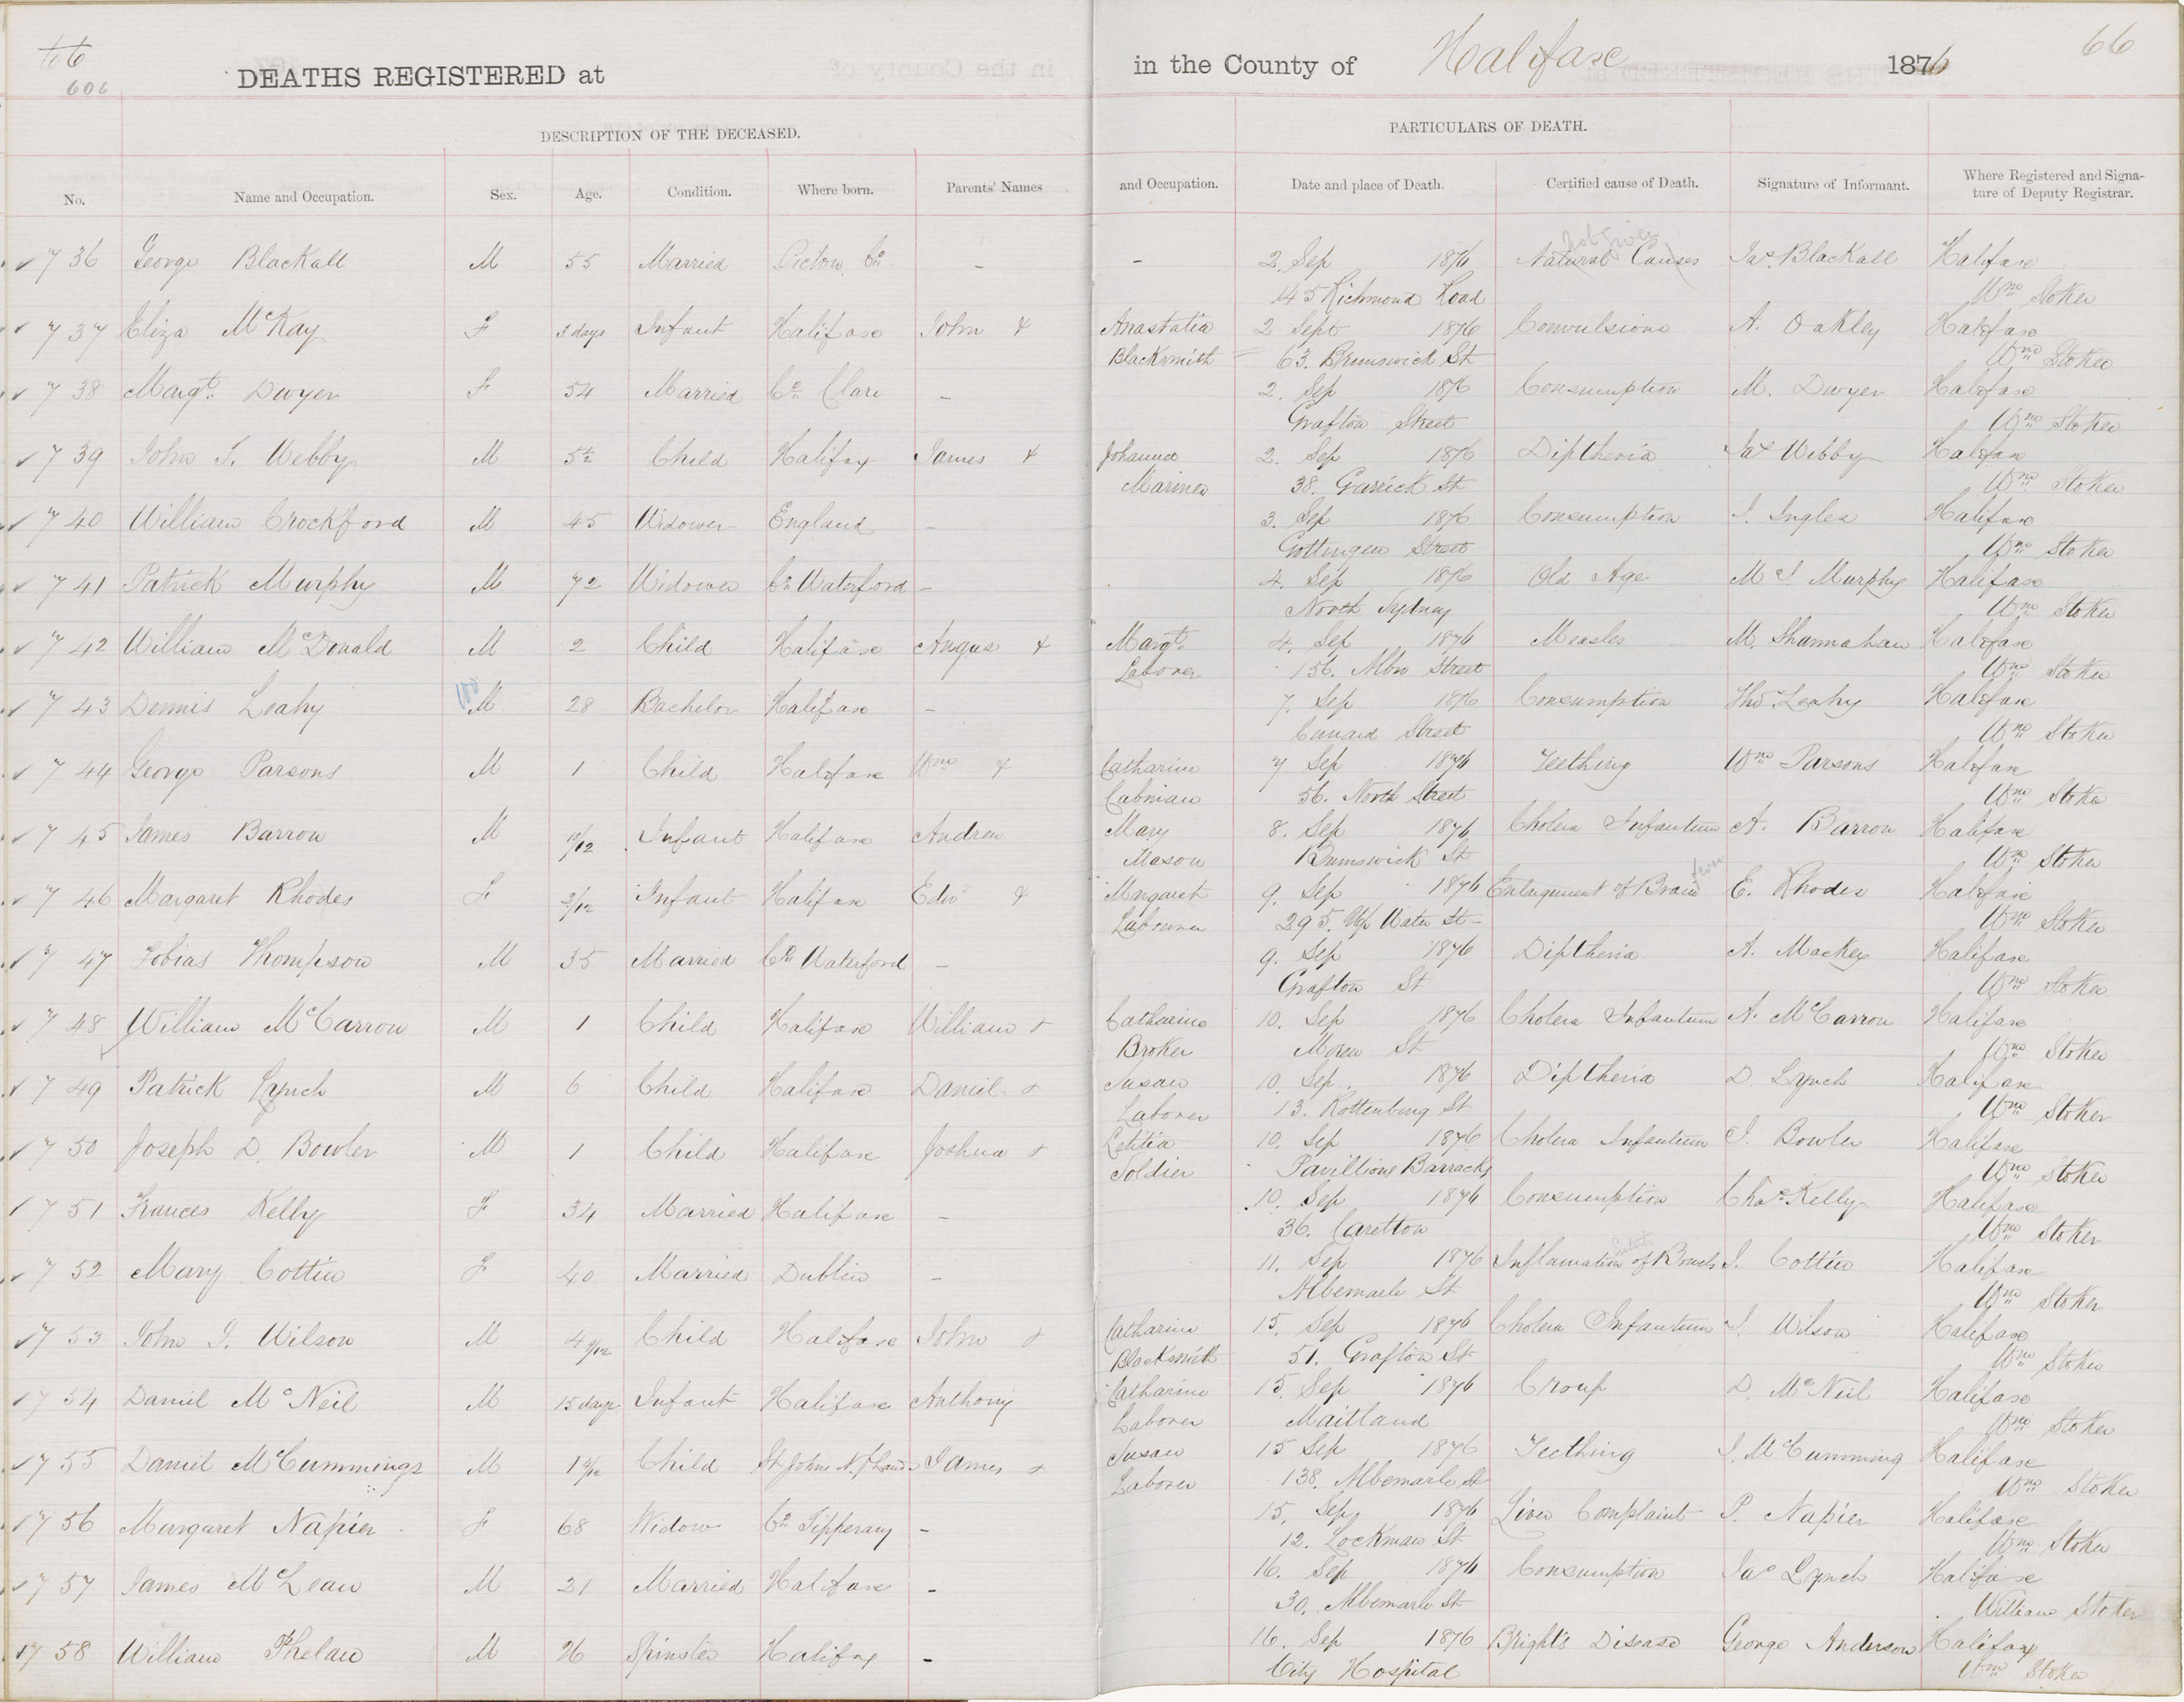 66
606
66
DEATHS REGISTERED at in the County of Halifax 1876
DESCRIPTION OF THE DECEASED. PARTICULARS OF DEATH.
No. Name and Occupation. Sex. Age. Condition. Where born. Parents' Names and Occupation. Date and place of Death. Certified cause of Death. Signature of Informant. Where Registered and Signature of Deputy Registrar.
Not Given
736 George Blackall M 55 Married Pictou Co. - - 2. Sep 1876 Natural Causes Jas. Blackall Halifax
145 Richmond Road Wm Stoker
737 Eliza McKay F 3 days Infant Halifax John & Anastatia 2 Sept 1876 Convulsions A. Oakley Halifax
Blacksmith 63. Brunswick St Wm Stoker
738 Margt. Dwyer F 54 Married Co. Clare - 2. Sep 1876 Consumption M. Dwyer Halifax
Grafton Street Wm Stoker
739 John T. Webby M 5½ Child Halifax James & Johanna 2. Sep 1876 Diptheria Jas Webby Halifax
Mariner 38. Garrick St Wm Stoker
740 William Crockford M 45 Widower England - 3. Sep 1876 Consumption J. Ingles Halifax
Gottingen Street Wm Stoker
741 Patrick Murphy M 72 Widower Co. Waterford - 4. Sep 1876 Old Age M J Murphy Halifax
North Sydney Wm Stoker
742 William McDonald M 2 Child Halifax Angus & Margt. 4. Sep 1876 Measles M. Shannahan Halifax
Laborer 156. Albro Street Wm Stoker
743 Dennis Leahy M 28 Bachelor Halifax - 7. Sep 1876 Consumption Thos. Leahy Halifax
Cunard Street Wm Stoker
744 George Parsons M 1 Child Halifax Wm & Catharine 7 Sep 1876 Teething Wm Parsons Halifax
Cabman 56. North Street Wm Stoker
745 James Barron M 10/12 Infant Halifax Andrew Mary 8. Sep 1876 Cholera Infantum A. Barron Halifax
Mason Brunswick St Wm Stoker
746 Margaret Rhodes F 3/12 Infant Halifax Edwd & Margaret 9. Sep 1876 Enlargement of Brain E. Rhodes Halifax
Labourer 295. Up Water St Wm Stoker
747 Tobias Thompson M 35 Married Co. Waterford - 9. Sep 1876 Diptheria A. Mackey Halifax
Grafton St Wm Stoker
748 William McCarron M 1 Child Halifax William & Catharine 10. Sep 1876 Cholera Infantum A. McCarron Halifax
Broker Moren St Wm Stoker
749 Patrick Lynch M 6 Child Halifax Daniel & Susan 10. Sep. 1876 Diptheria D. Lynch Halifax
Laborer 13. Rottenburg St Wm Stoker
750 Joseph D. Bowler M 1 Child Halifax Joshua & Letitia 10. Sep 1876 Cholera Infantum J. Bowler Halifax
Soldier Pavillions Barracks Wm Stoker
751 Frances Kelly F 34 Married Halifax - 10. Sep 1876 Consumption Chas. Kelly Halifax
36. Carelton Wm Stoker
752 Mary Cottin F 40 Married Dublin - 11. Sep 1876 Inflamation of Bowels J. Cottin Halifax
Albemarle St Wm Stoker
753 John J. Wilson M 4 9/12 Child Halifax John & Catharine 15. Sep 1876 Cholera Infantum J. Wilson Halifax
Blacksmith 51. Grafton St Wm Stoker
754 Daniel McNeil M 15 days Infant Halifax Anthony Catharine 15. Sep 1876 Croup D. McNeil Halifax
Laborer Maitland Wm Stoker
755 Daniel McCummings M Child St Johns N.F.Land James & Susan 15 Sep 1876 Teething J. McCumming Halifax
Laborer 138. Albemarle St Wm Stoker
756 Margaret Napier F 68 Widow Co. Tipperary - 15. Sep 1876 Liver Complaint P. Napier Halifax
12. Lockman St Wm Stoker
757 James McLean M 21 Married Halifax - 16. Sep 1876 Consumption Jas Lynch Halifax
30. Albemarle St William Stoker
758 William Phelan M 26 Spinster Halifax - 16. Sep 1876 Bright's Disease George Anderson Halifax
City Hospital Wm Stoker